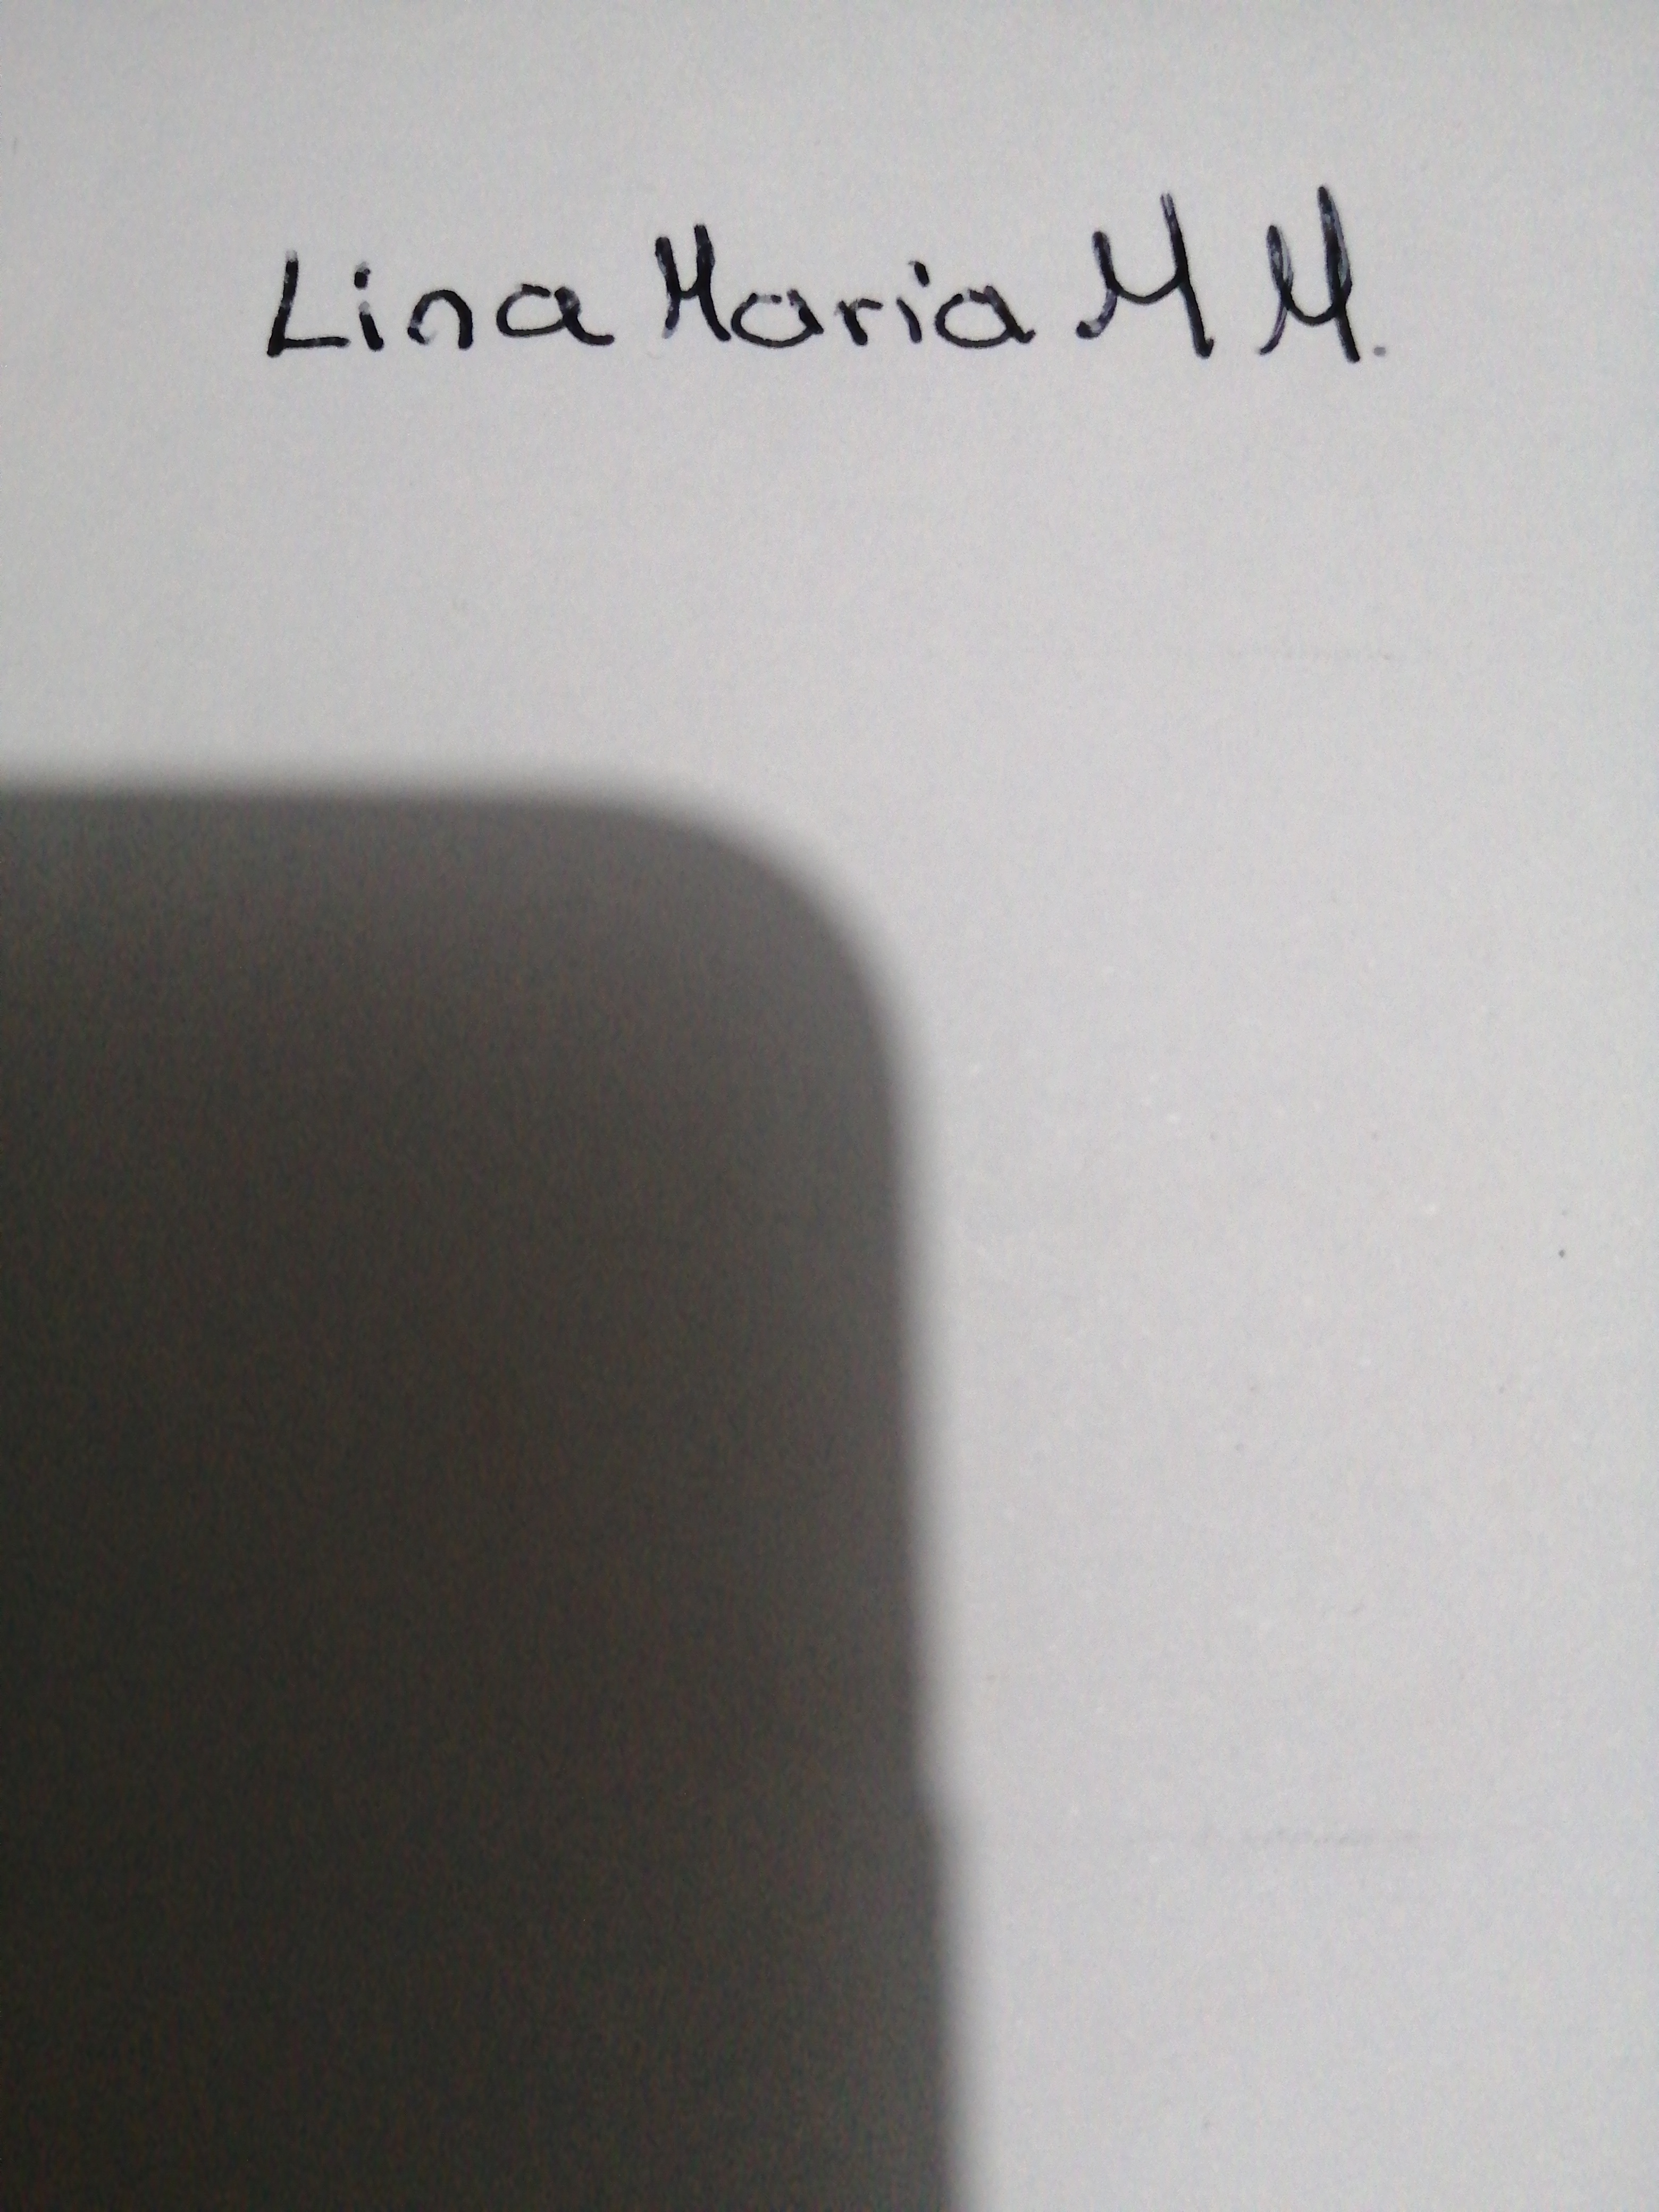 Lina Maria M M.